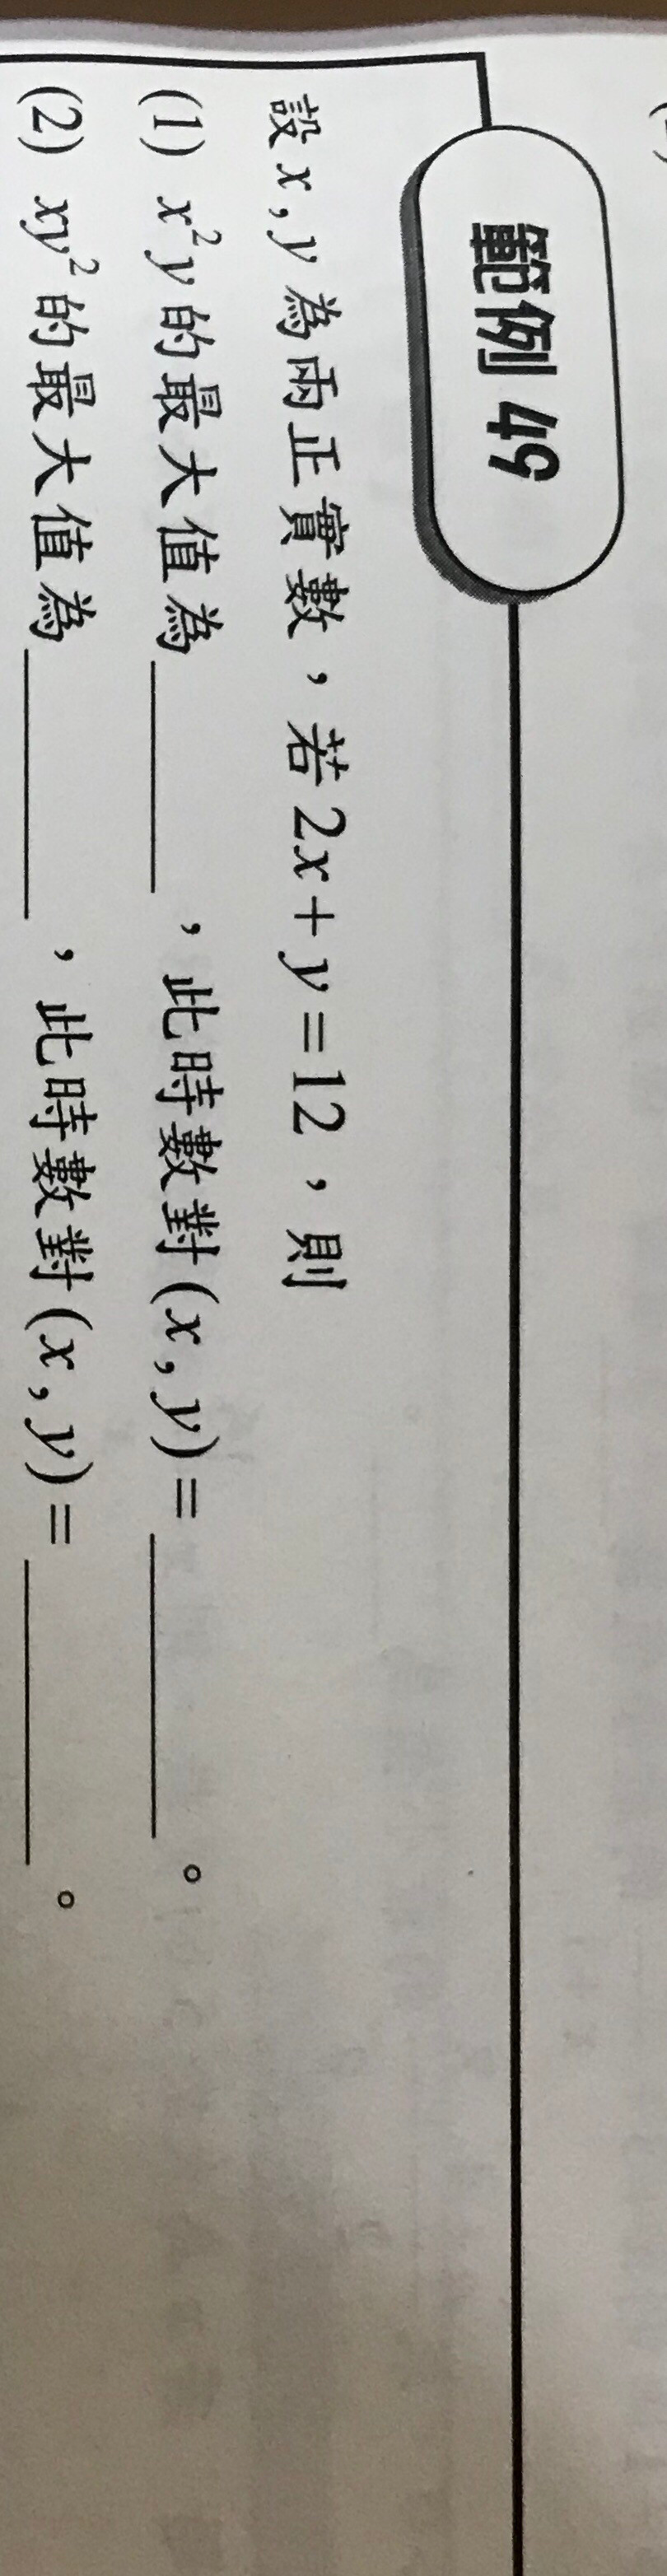 範例 49
設 x , y 為兩正實數，若 2x + y = 12，則
(1) x²y 的最大值為______，此時數對 (x , y) = ______。
(2) xy² 的最大值為______，此時數對 (x , y) = ______。